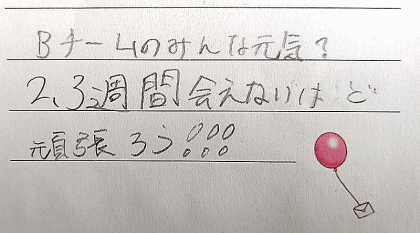 Bチームのみんな元気？
2,3週間会えないけど
頑張ろう!!!